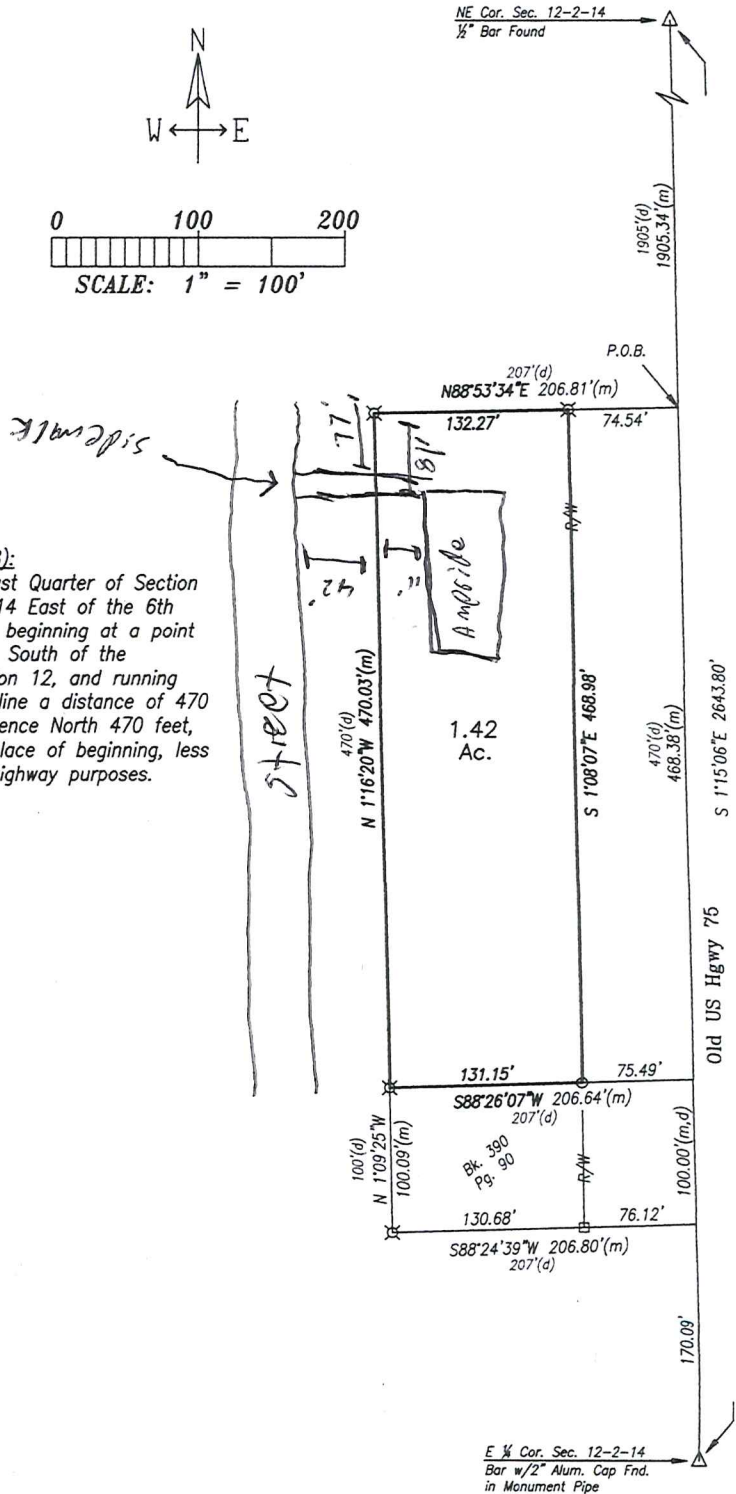 NE Cor. Sec. 12-2-14
½" Bar Found
N
W E
0 100 200
SCALE: 1" = 100'
1905'(d)
1905.34'(m)
P.O.B.
207'(d)
N88°53'34"E 206.81'(m)
132.27' 74.54'
sidewalk
18'
R/W
42'
11'
Ampride
):
st Quarter of Section
14 East of the 6th
beginning at a point
South of the
on 12, and running
line a distance of 470
ence North 470 feet,
lace of beginning, less
ighway purposes.
470'(d)
N 1°16'20"W 470.03'(m)
1.42
Ac.
S 1°08'07"E 468.98'
470'(d)
468.38'(m)
S 1°15'06"E 2643.80'
Old US Hgwy 75
131.15' 75.49'
S88°26'07"W 206.64'(m)
207'(d)
100'(d)
N 1°09'25"W
100.09'(m)
Bk. 390
Pg. 90
R/W
100.00'(m,d)
130.68' 76.12'
S88°24'39"W 206.80'(m)
207'(d)
170.09'
E ¼ Cor. Sec. 12-2-14
Bar w/2" Alum. Cap Fnd.
in Monument Pipe